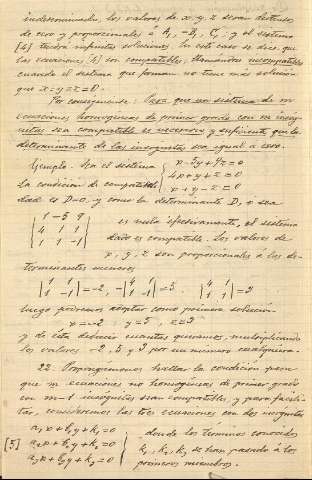 indeterminado, los valores de x, y, z seran distintos
de cero y proporcionales á A₁, -B₁, C₁, y el sistema
[4] tendra infinitas soluciones. En este caso se dice que
las ecuaciones [4] son compatibles, llamandose incompatibles
cuando el sistema que forman no tiene más solucion
que x=y=z=0.
Por consiguiente: Para que un sistema de m
ecuaciones homogéneas de primer grado con m incóg-
nitas sea compatible es necesario y suficiente que la
determinante de las incognitas sea igual a cero.
Ejemplo. Sea el sistema { x-5y+9z=0
4x+y+z=0
x+y-z=0
la condicion de compatibili-
dad es D=0, y como la determinante D, ó sea
|1 -5 9|
|4 1 1|
|1 1 -1|
es nula efectivamente, el sistema
dado es compatible. Los valores de
x, y, z son proporcionales a los de-
terminantes menores
|1 1; 1 -1| = -2, -|4 1; 1 -1| = 5, |4 1; 1 1| = 3
luego podremos adoptar como primera solución
x=-2, y=5, z=3
y de ésta deducir cuantas queramos, multiplicando
los valores -2, 5 y 3 por un numero cualquiera.
22. Propongamonos hallar la condicion para
que m ecuaciones no homogéneas de primer grado
con m-1 incognitas sean compatibles, y para facili-
tar, consideremos las tres ecuaciones con dos incognitas
[5] a₁x+b₁y+k₁=0
a₂x+b₂y+k₂=0
a₃x+b₃y+k₃=0
donde los términos conocidos
k₁, k₂, k₃ se han pasado á los
primeros miembros.